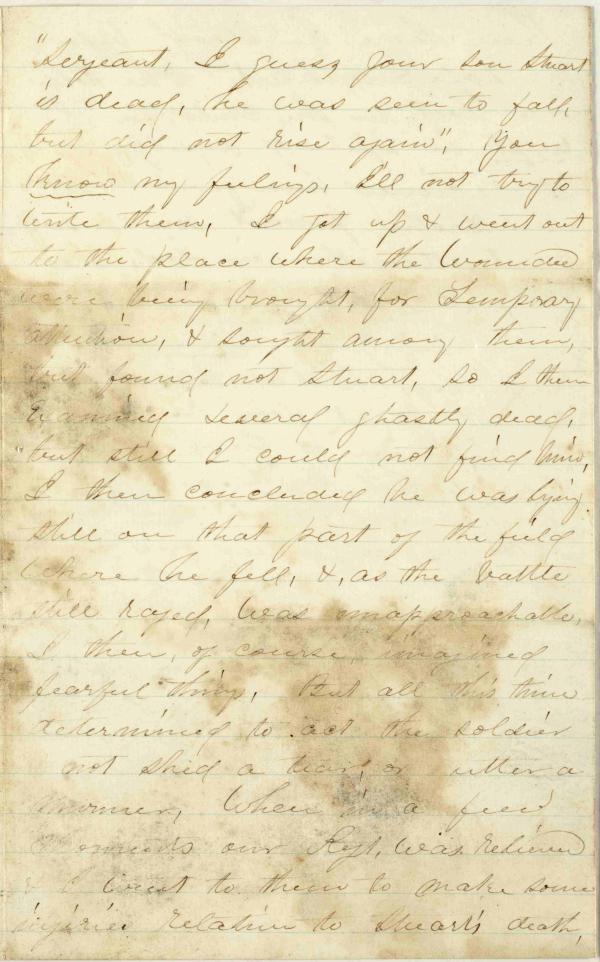 "Sergeant, I guess your son Stuart
is dead, he was seen to fall,
but did not rise again", You
know my feelings, I'll not try to
write them, I got up & went out
to the place where the Wounded
were being brought, for Temprary
attention, & sought among them,
but found not Stuart, so I then
examined several ghastly dead,
but still I could not find him,
I then concluded he was lying
still on that part of the field
where he fell, &, as the battle
still raged, was unapproachable,
I then, of course, imagined
fearful things, But all this time
determined to act the soldier
not shed a tear, or utter a
murmer, When in a few
moments our Regt, was relieved
& I went to them to make some
injuries relative to Stuart's death,